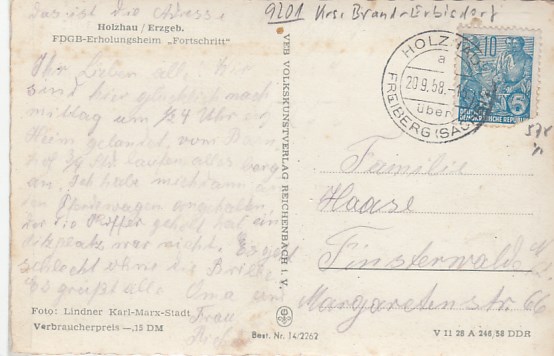 Das ist die Adresse
Holzhau / Erzgeb.
FDGB-Erholungsheim „Fortschritt"
Ihr Lieben all. Wir
sind hier glücklich nach
mittag um ¼4 Uhr im
Heim gelandet, vom Bahn
hof ¾ Std laufen alles berg
an. Ich habe mich
angehalten
die Koffer geholt hat ein
Sitzplatz war nicht. Es geht
schlecht ohne die Brille
Es grüßt alle Oma
Frau
Foto: Lindner Karl-Marx-Stadt
Verbraucherpreis —,15 DM
VEB VOLKSKUNSTVERLAG REICHENBACH I. V.
Best. Nr. 14/2262
9201 Krs. Brand-Erbisdorf
HOLZHAU
a
20.9.58.-1
über
FREIBERG (SACHS)
10
5
DEUTSCHE DEMOKRATISCHE REPUBLIK
Familie
Haase
Finsterwalde N/L
Margaretenstr. 66
V 11 28 A 248/58 DDR